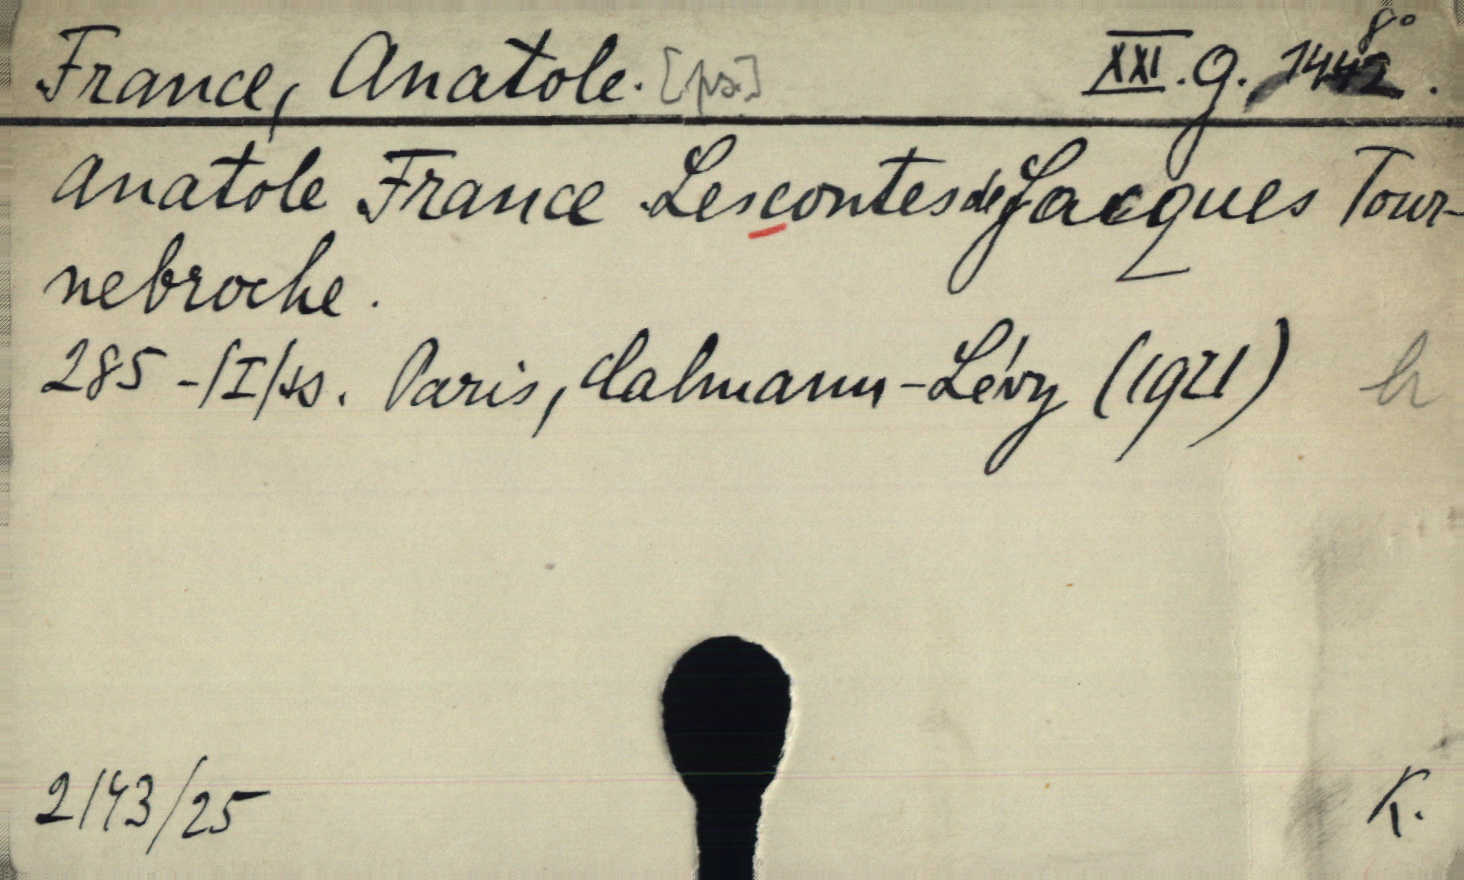 France, Anatole. [ps.] XXI. G. 1442. 8°
Anatole France Les contes de Jacques Tour-
nebroche.
285 -/I/ ss. Paris, Calmann-Lévy (1921)
2143/25 K.